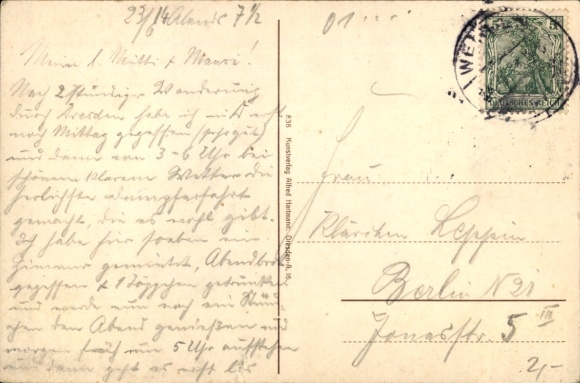 23/6 14 Abends 7 1/2
Meine l. Mutti + Mausi!
Nach 2 stündiger Wanderung
durch Dresden habe ich
nach Mittag gegessen (sehr gut)
und dann von 3-6 Uhr bei
schönem klarem Wetter die
herlichste Dampferfahrt
gemacht, die es wohl gibt.
Ich habe hier soeben ein
Zimmer gemietet, Abendbrot
gegessen + 1 Töppchen getrunken
und werde nun noch ein Stünd
chen den Abend genießen und
morgen früh um 5 Uhr aufstehen
und dann geht es
836 Kunstverlag Alfred Hartmann, Dresden-A. 16.
DEUTSCHES REICH
Frau
Klärchen Leppin
Berlin N 21
Jonasstr. 5 III
2,-